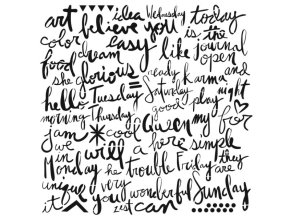 art idea Wednesday today
color believe you is the
food dream easy like journal open
she glorious ready karma and
hello Tuesday Saturday night
morning Thursday good play
jam cool Queen my for
we will a here simple
in Monday he trouble Friday they are
unique very
you wonderful Sunday
it zest can